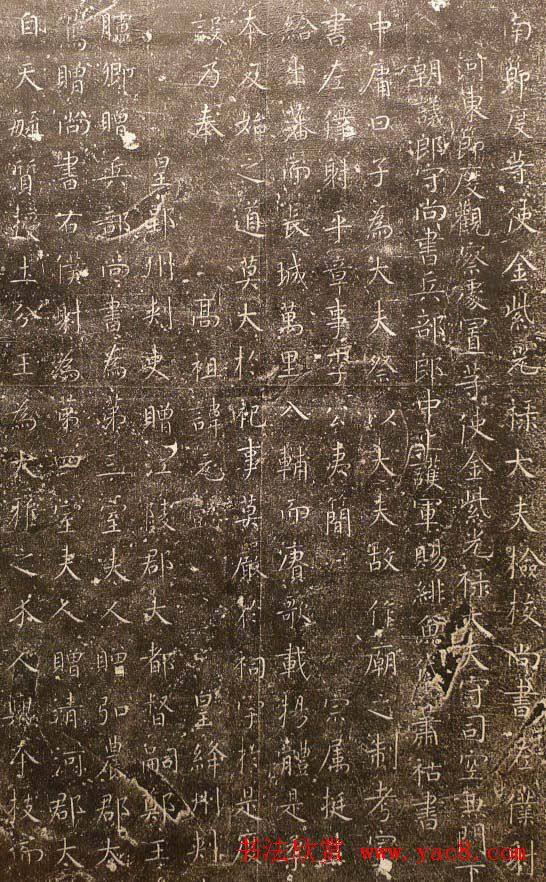 南節度等使金紫光祿大夫檢校尚書左僕射
河東節度觀察處置等使金紫光祿大夫守司空兼門下
朝議郎守尚書兵部郎中上護軍賜緋魚袋蕭祜書
中庸曰子為大夫祭以大夫故作廟之制考
書左僕射平章事李公夷簡 宗属挺
給出藩而長城萬里入輔而賡歌載揚體是
本反始之道莫大於祀事莫嚴於祠宇於是
設乃奉 高祖諱元懿 皇絳州刺
皇鄂州刺史贈江陵郡大都督嗣鄭王
臚卿贈兵部尚書為第三室夫人贈弘農郡太
篤贈尚書右僕射為第四室夫人贈清河郡太
自天毓質援土分王為大雅之永人興本枝而
书法欣赏 www.yac8.com